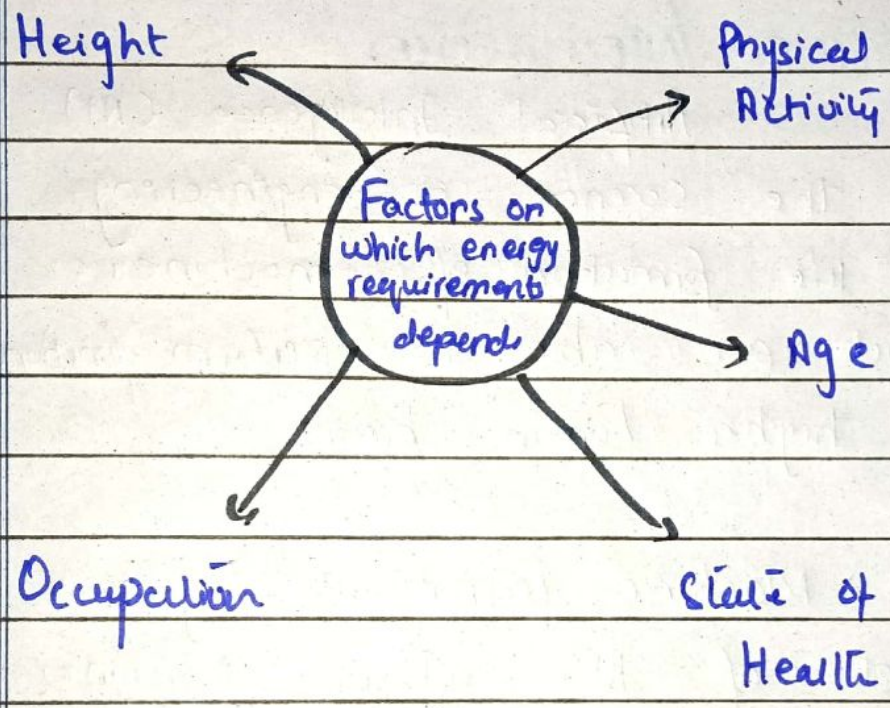 Height
Physical
Activity
Factors on
which energy
requirements
depends
Age
Occupation
State of
Health